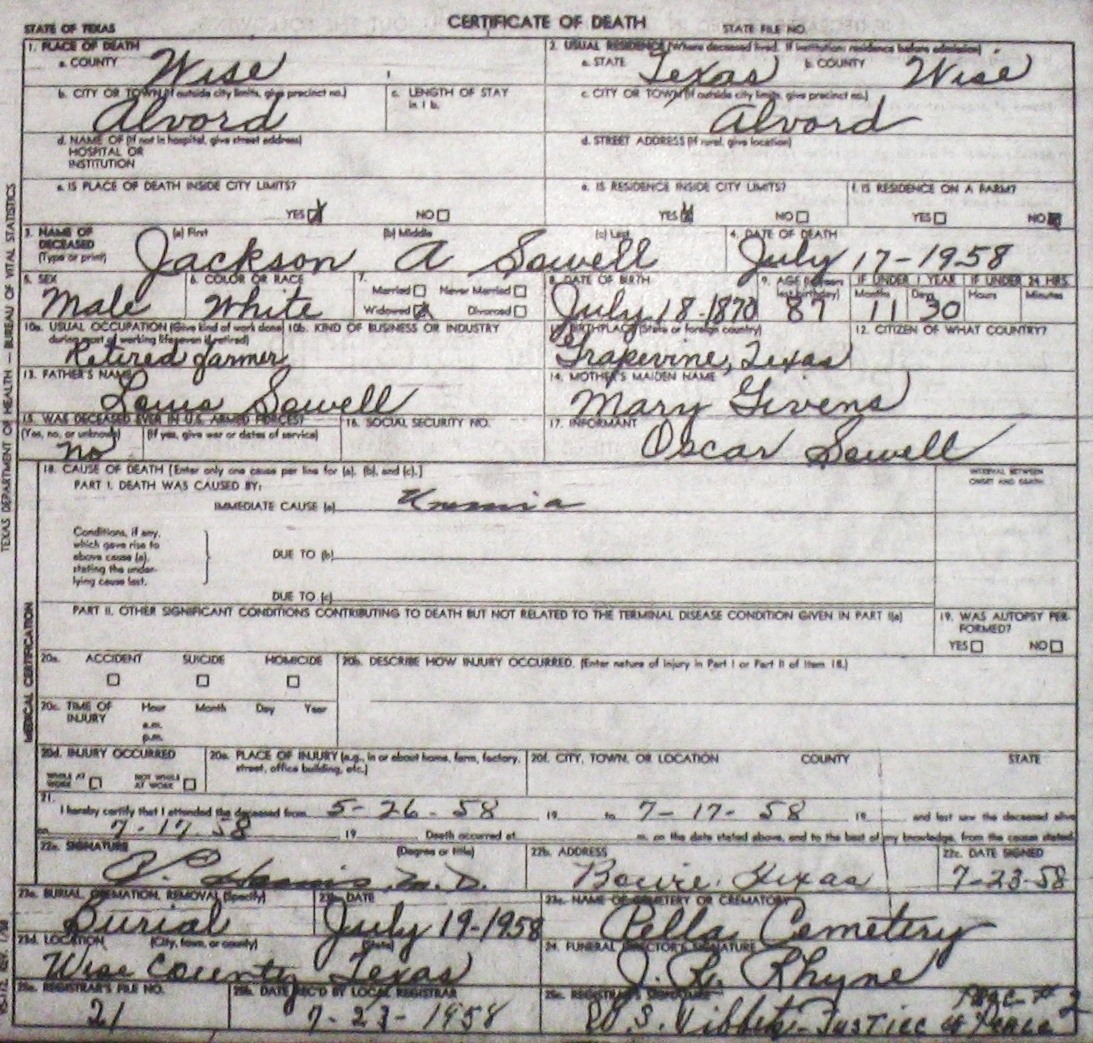 CERTIFICATE OF DEATH
STATE OF TEXAS STATE FILE NO.
1. PLACE OF DEATH 2. USUAL RESIDENCE (Where deceased lived. If institution: residence before admission)
a. COUNTY Wise a. STATE Texas b. COUNTY Wise
b. CITY OR TOWN (If outside city limits, give precinct no.) c. LENGTH OF STAY in 1 b. c. CITY OR TOWN (If outside city limits, give precinct no.)
Alvord Alvord
d. NAME OF (If not in hospital, give street address) HOSPITAL OR INSTITUTION d. STREET ADDRESS (If rural, give location)
e. IS PLACE OF DEATH INSIDE CITY LIMITS? e. IS RESIDENCE INSIDE CITY LIMITS? f. IS RESIDENCE ON A FARM?
YES NO YES NO YES NO
3. NAME OF DECEASED (Type or print) (a) First (b) Middle (c) Last 4. DATE OF DEATH
Jackson A Sowell July 17-1958
5. SEX 6. COLOR OR RACE 7. 8. DATE OF BIRTH 9. AGE (In years last birthday) IF UNDER 1 YEAR IF UNDER 24 HRS.
Married Never Married Months Days Hours Minutes
Male White Widowed Divorced July 18-1870 87 11 30
10a. USUAL OCCUPATION (Give kind of work done during most of working life, even if retired) 10b. KIND OF BUSINESS OR INDUSTRY 11. BIRTHPLACE (State or foreign country) 12. CITIZEN OF WHAT COUNTRY?
Retired farmer Grapevine, Texas
13. FATHER'S NAME 14. MOTHER'S MAIDEN NAME
Louis Sowell Mary Givens
15. WAS DECEASED EVER IN U.S. ARMED FORCES? 16. SOCIAL SECURITY NO. 17. INFORMANT
(Yes, no, or unknown) (If yes, give war or dates of service)
no Oscar Sowell
18. CAUSE OF DEATH [Enter only one cause per line for (a), (b), and (c).] INTERVAL BETWEEN ONSET AND DEATH
PART I. DEATH WAS CAUSED BY:
IMMEDIATE CAUSE (a)
Conditions, if any, which gave rise to above cause (a), stating the underlying cause last.
DUE TO (b)
DUE TO (c)
PART II. OTHER SIGNIFICANT CONDITIONS CONTRIBUTING TO DEATH BUT NOT RELATED TO THE TERMINAL DISEASE CONDITION GIVEN IN PART I(a) 19. WAS AUTOPSY PERFORMED?
YES NO
20a. ACCIDENT SUICIDE HOMICIDE 20b. DESCRIBE HOW INJURY OCCURRED. (Enter nature of injury in Part I or Part II of item 18.)
20c. TIME OF INJURY Hour Month Day Year
a.m.
p.m.
20d. INJURY OCCURRED 20e. PLACE OF INJURY (e.g., in or about home, farm, factory, street, office building, etc.) 20f. CITY, TOWN, OR LOCATION COUNTY STATE
WHILE AT WORK NOT WHILE AT WORK
21.
I hereby certify that I attended the deceased from 5-26-58 19 to 7-17-58 19 and last saw the deceased alive
on 7-17-58 19 Death occurred at m. on the date stated above, and to the best of my knowledge, from the causes stated.
22a. SIGNATURE (Degree or title) 22b. ADDRESS 22c. DATE SIGNED
M.D. Bowie, Texas 7-23-58
23a. BURIAL, CREMATION, REMOVAL (Specify) 23b. DATE 23c. NAME OF CEMETERY OR CREMATORY
Burial July 19-1958 Pella Cemetery
23d. LOCATION (City, town, or county) (State) 24. FUNERAL DIRECTOR'S SIGNATURE
Wise County Texas J. R. Rhyne
25a. REGISTRAR'S FILE NO. 25b. DATE REC'D BY LOCAL REGISTRAR 25c. REGISTRAR'S SIGNATURE
21 7-23-1958 Justice of Peace
TEXAS DEPARTMENT OF HEALTH — BUREAU OF VITAL STATISTICS
MEDICAL CERTIFICATION